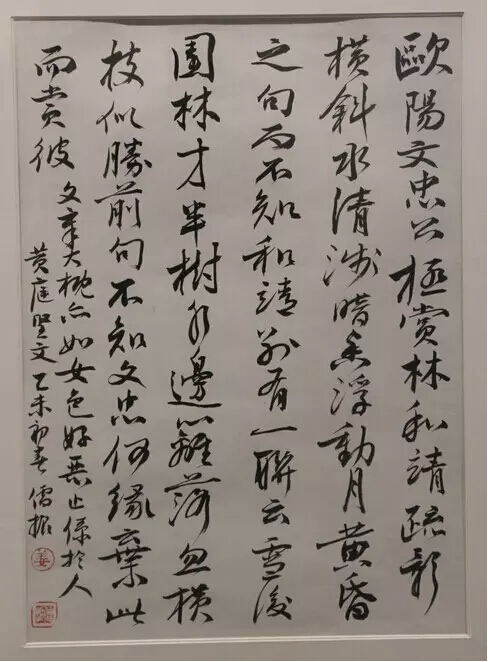 歐陽文忠公極賞林和靖疏影
橫斜水清淺暗香浮動月黃昏
之句而不知和靖別有一聯云雪後
園林才半樹水邊籬落忽橫
枝似勝前句不知文忠何緣棄此
而賞彼
文章大概亦如女色好惡止係於人
黃庭堅文乙未初春儒
姜